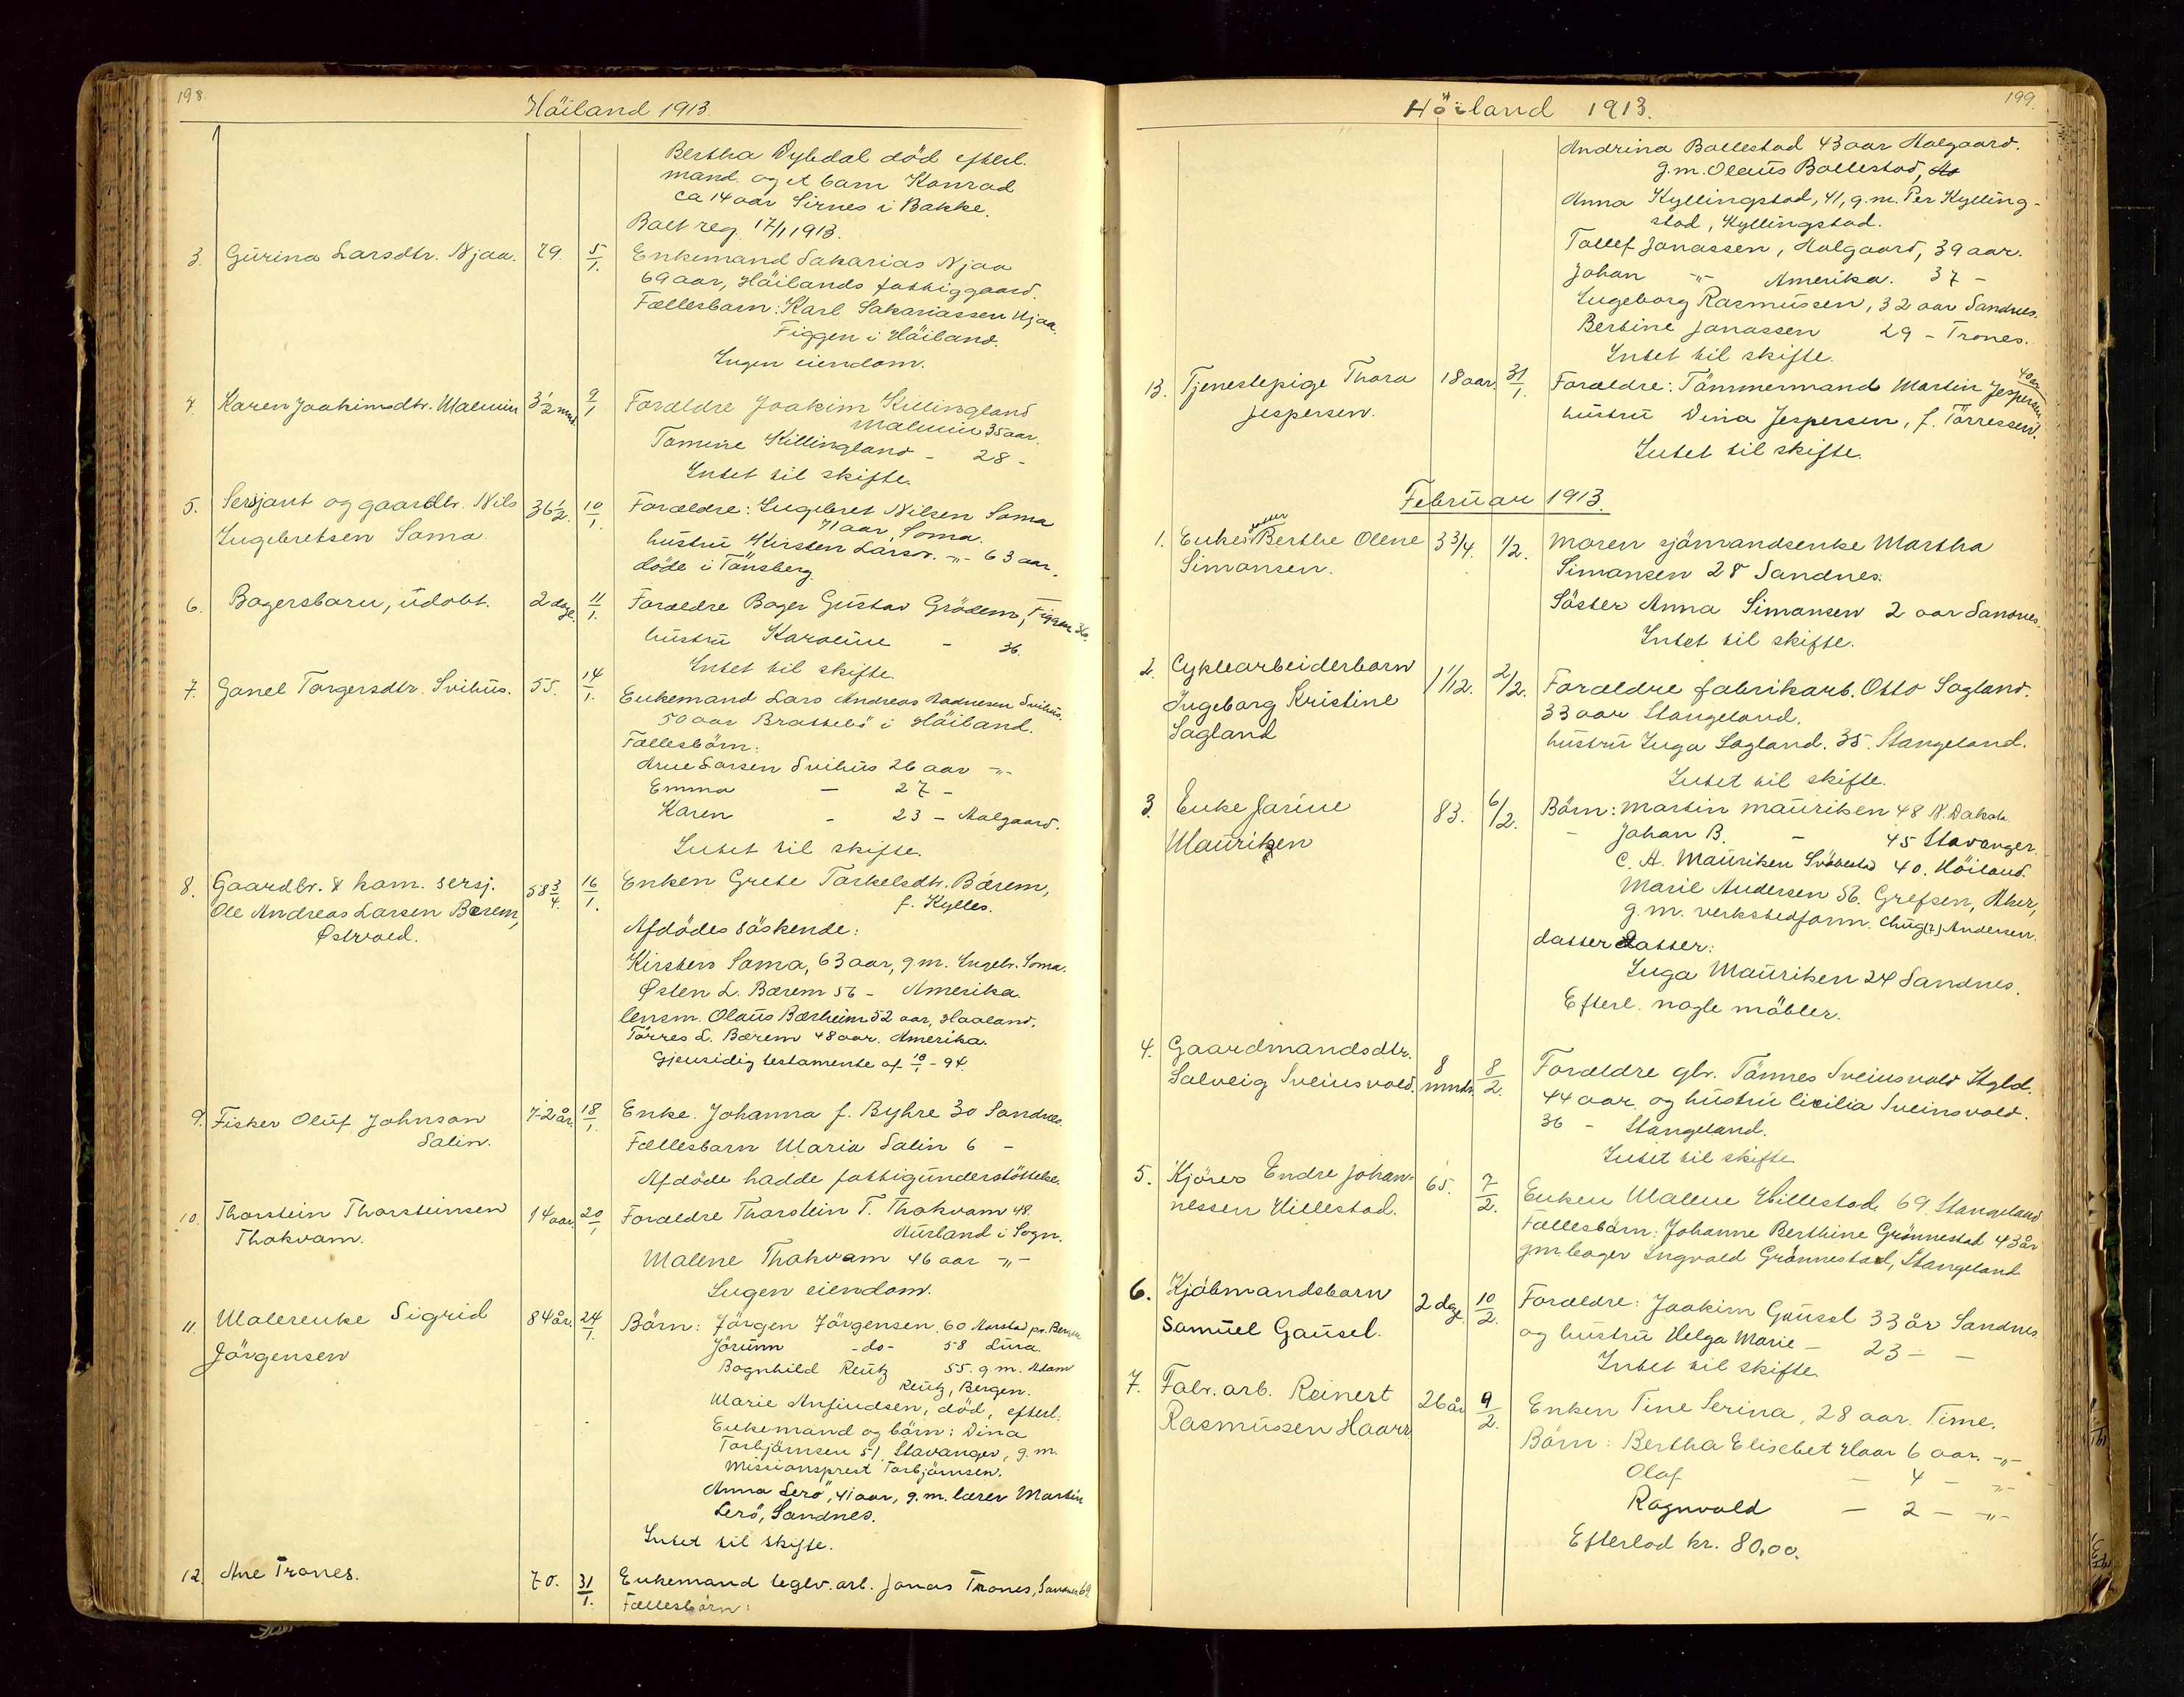 198.
Höiland 1913.
Bertha Dybdal död efterl.
mand og et barn Konrad
ca 14 aar Sirnes i Bakke.
Boet reg. 17/1 1913.
3. Gurina Larsdtr. Njaa. 79. 5/1. Enkemand Sakarias Njaa
69 aar, Höilands fattiggaard.
Fællesbarn: Karl Sakariassen Njaa.
Figgen i Höiland.
Ingen eiendom.
4. Karen Joakimsdtr. Malmin 3 1/2 mnd. 9/1 Forældre Joakim Killingland
Malmin 35 aar.
Tomine Killingland - 28 -
Intet til skifte.
5. Sersjant og gaardbr. Nils 36 1/2. 10/1. Forældre: Ingebret Nilsen Soma
Ingebretsen Soma 71 aar, Soma.
hustru Kirsten Larsdr. -"- 63 aar.
döde i Tönsberg.
6. Bagersbarn, udöbt. 2 dage. 11/1. Forældre Bager Gustav Grödem, Figgen 36.
hustru Karoline - 36.
Intet til skifte
7. Gonel Torgersdtr. Svihus. 55. 14/1. Enkemand Lars Andreas Svihus.
50 aar Bratteбö i Höiland.
Fællesbörn:
Arne Larsen Svihus 26 aar -"-
Emma - 27 -
Karen - 23 - Aalgaard.
Intet til skifte.
8. Gaardbr. & kom. sersj. 58 3/4. 16/1. Enken Grete Torkelsdtr. Bærem,
Ole Andreas Larsen Bærem, f. Kylles.
Østvold.
Afdödes söskende:
Kirsten Soma, 63 aar, g.m. Ingebr. Soma.
Østen L. Bærem 56 - Amerika.
lensm. Olaus Bærheim 52 aar, Haaland.
Törres L. Bærem 48 aar. Amerika.
Gjensidig testamente af 10/1 - 94.
9. Fisker Oluf Johnson 72 år. 18/1. Enke. Johanna f. Byhre 30 Sandnes.
Salin. Fællesbarn Maria Salin 6 -
Afdöde hadde fattigunderstöttelse.
10. Thorstein Thorsteinsen 14 aar 20/1 Forældre Thorstein T. Thokvam 48.
Thokvam. Aurland i Sogn.
Malene Thokvam 46 aar -"-
Ingen eiendom.
11. Malerenke Sigrid 84 år. 24/1. Börn: Jörgen Jörgensen. 60 Aarstad pr. Bergen
Jörgensen Jörunn -do- 58 Lura.
Bognhild Reutz 55 g.m. Adam
Reutz, Bergen.
Marie Anfindsen, död, efterl.
Enkemand og börn: Dina
Torbjörnsen 51 Stavanger, g.m.
Missionsprest Torbjörnsen.
Anna Lerö, 41 aar, g.m. lærer Martin
Lerö, Sandnes.
Intet til skifte.
12. Ane Trones. 70. 31/1. Enkemand teglv.arb. Jonas Trones, Sandnes 69
Fællesbörn:
199.
Höiland 1913.
Andrina Bollestad 43 aar Aalgaard.
g.m. Olaus Bollestad,
Anna Kyllingstad, 41, g.m. Per Kylling-
stad, Kyllingstad.
Tollef Jonassen, Aalgaard, 39 aar.
Johan -"- Amerika. 37 -
Ingeborg Rasmussen, 32 aar Sandnes.
Bertine Jonassen 29 - Trones.
Intet til skifte.
13. Tjenestepige Thora 18 aar. 31/1. Forældre: Tömmermand Martin Jespersen 40 aar
Jespersen. hustru Dina Jespersen, f. Törressen.
Intet til skifte.
Februar 1913.
1. Enkes datter Berthe Olene 3 3/4. 1/2. Moren sjömandsenke Martha
Simonsen. Simonsen 28 Sandnes.
Söster Anna Simonsen 2 aar Sandnes.
Intet til skifte.
2. Cyklearbeiderbarn 1 1/12. 2/2. Forældre fabrikarb. Otto Sagland.
Ingeborg Kristine 33 aar Stangeland.
Sagland hustru Inga Sagland. 35. Stangeland.
Intet til skifte.
3. Enke Jarine 83. 6/2. Börn: Martin Mauritzen 48 N. Dakota
Mauritzen - Johan B. - 45 Stavanger.
C. A. Mauritzen Svöbestad 40. Höiland.
Marie Andersen 56. Grefsen, Aker,
g.m. verkstedform. Chug(?) Andersen.
datter Datter:
Inga Mauritzen 24 Sandnes.
Efterl. nogle möbler.
4. Gaardmandsdtr. 8 mndr. 8/2 Forældre gbr. Tönnes Sveinsvold Stgld.
Solveig Sveinsvold. 44 aar. og hustru Cicilia Sveinsvold.
36 - Stangeland.
Intet til skifte
5. Kjörer Endre Johan- 65. 7/2. Enken Malene Hillestad, 69. Stangeland
nessen Hillestad. Fællesbörn: Johanne Berthine Grönnestad 43 år
gm bager Ingvald Grönnestad, Stangeland
6. Kjöbmandsbarn 2 dage. 10/2. Forældre: Joakim Gausel 33 år Sandnes
Samuel Gausel. og hustru Helga Marie - 23 - -
Intet til skifte.
7. Fabr. arb. Reinert 26 år 9/2. Enken Tine Serina, 28 aar. Time.
Rasmussen Haarr Börn: Bertha Elisebet Haar 6 aar. -"-
Olaf - 4 - -"-
Ragnvald - 2 - -"-
Efterlod kr. 80,00.